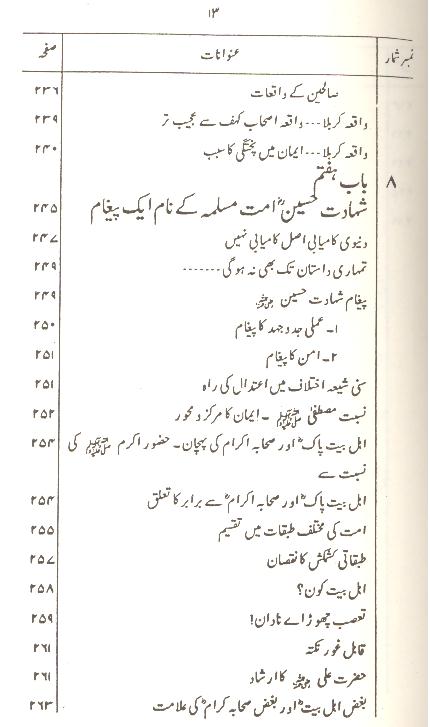 ۱۳
نمبر شمار عنوانات صفحہ
صالحین کے واقعات ۲۳۶
واقعہ کربلا۔۔۔واقعہ اصحاب کہف سے عجیب تر ۲۳۹
واقعہ کربلا۔۔۔ایمان میں پختگی کا سبب ۲۴۰
۸ باب ہفتم
شہادت حسینؓ امت مسلمہ کے نام ایک پیغام ۲۴۵
دنیوی کامیابی اصل کامیابی نہیں ۲۴۷
تمہاری داستان تک بھی نہ ہو گی۔۔۔۔۔۔۔ ۲۴۹
پیغام شہادت حسین رضی اللہ عنہ ۲۴۹
۱۔ عملی جدوجہد کا پیغام ۲۵۰
۲۔ امن کا پیغام ۲۵۱
سنی شیعہ اختلاف میں اعتدال کی راہ ۲۵۱
نسبت مصطفیٰ ﷺ ۔ ایمان کا مرکز و محور ۲۵۲
اہل بیت پاکؓ اور صحابہ اکرام کی پہچان۔ حضور اکرم ﷺ کی ۲۵۴
نسبت سے
اہل بیت پاکؓ اور صحابہ اکرامؓ سے برابر کا تعلق ۲۵۴
امت کی مختلف طبقات میں تقسیم ۲۵۵
طبقاتی کشمکش کا نقصان ۲۵۷
اہل بیت کون؟ ۲۵۸
تعصب چھوڑ اے نادان! ۲۵۹
قابل غور نکتہ ۲۶۱
حضرت علی رضی اللہ عنہ کا ارشاد ۲۶۱
بغض اہل بیتؓ اور بغض صحابہ کرامؓ کی علامت ۲۶۳